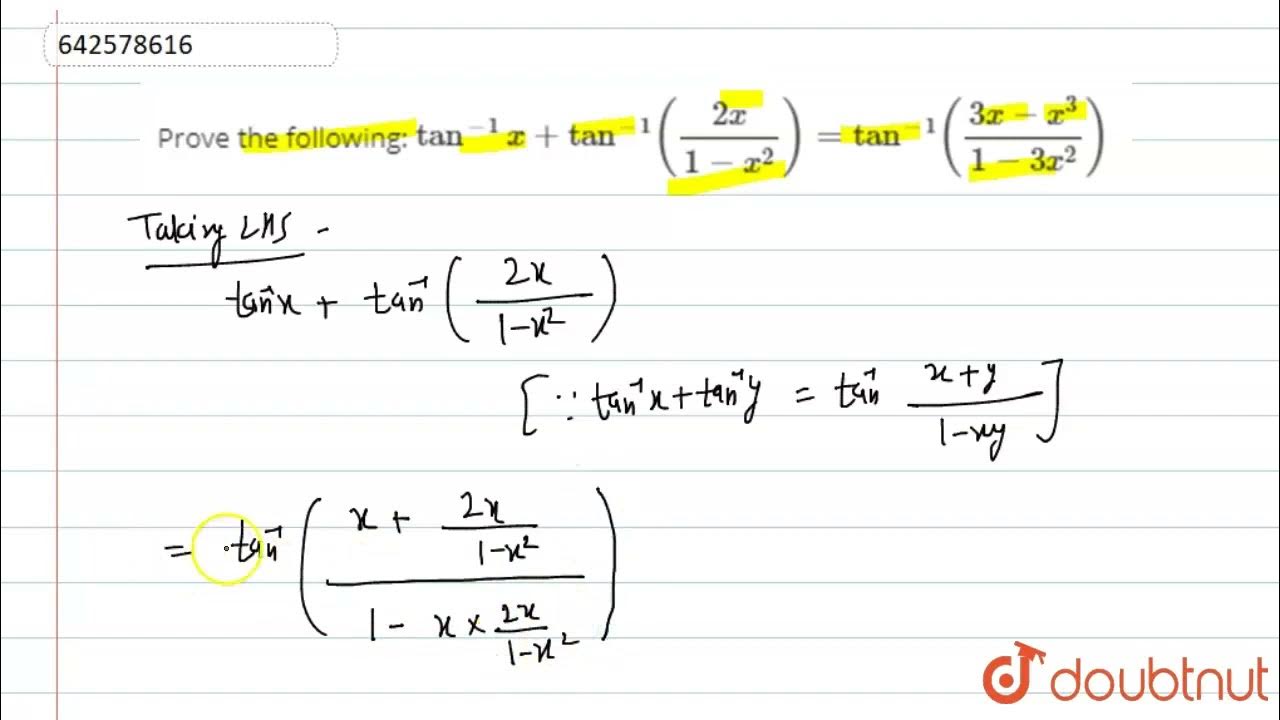 642578616
Prove the following: tan⁻¹ x + tan⁻¹ (2x / (1 − x²)) = tan⁻¹ ((3x − x³) / (1 − 3x²))
Taking LHS -
tan⁻¹x + tan⁻¹ (2x / (1−x²))
[∵ tan⁻¹x + tan⁻¹y = tan⁻¹ (x+y) / (1−xy)]
= tan⁻¹ ((x + 2x / (1−x²)) / (1 − x × 2x / (1−x²)))
doubtnut